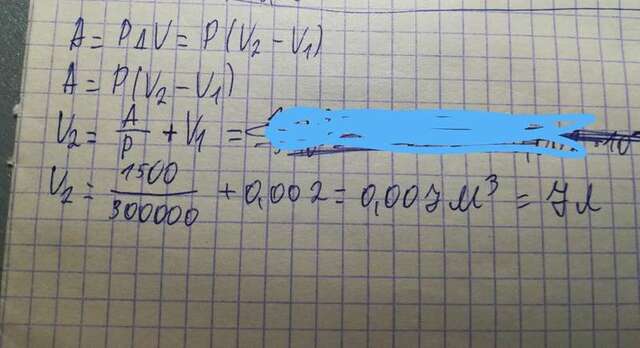 A = PΔV = P(V₂ - V₁)
A = P(V₂ - V₁)
V₂ = A/P + V₁ =
V₂ = 1500/300000 + 0,002 = 0,007 м³ = 7л